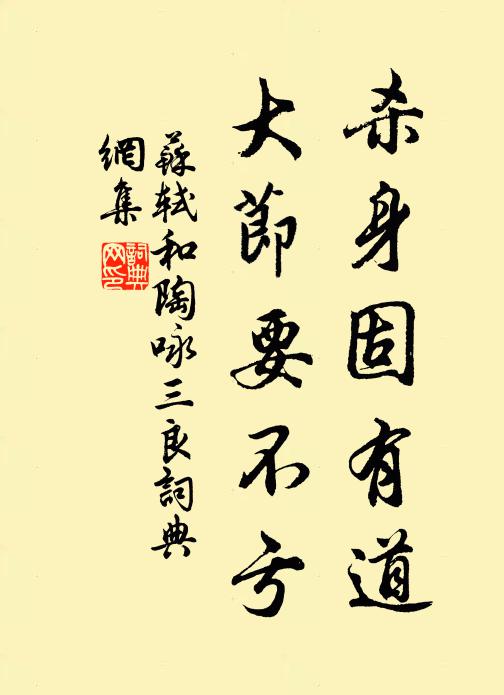 杀身固有道
大節要不亏
蘇軾和陶咏三良詞典
網集
詞典网印